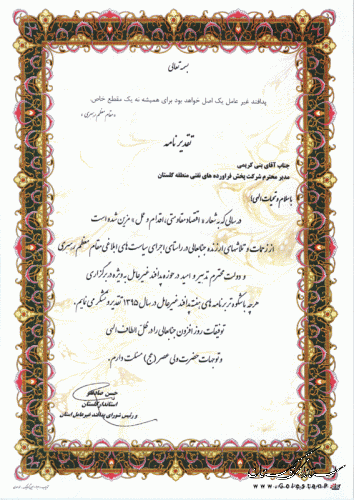 بسمه تعالی
پدافند غیر عامل یک اصل خواهد بود برای همیشه نه یک مقطع خاص.
«مقام معظم رهبری»
تقدیرنامه
جناب آقای بنی کریمی
مدیر محترم شرکت پخش فرآورده های نفتی منطقه گلستان
با سلام و تحیات الهی؛
در سالی که به شعار «اقتصاد مقاومتی، اقدام و عمل» مزین شده است
از زحمات و تلاشهای ارزنده جنابعالی در راستای اجرای سیاست‌های ابلاغی مقام معظم رهبری
و دولت محترم تدبیر و امید در حوزه پدافند غیرعامل به ویژه در برگزاری
هرچه باشکوه تر برنامه های هفته پدافند غیرعامل در سال ۱۳۹۵ تقدیر و تشکر می نمایم.
توفیقات روز افزون جنابعالی را در ظل الطاف الهی
و توجهات حضرت ولی عصر (عج) مسئلت دارم.
حسن صادقلو
استاندار گلستان
و رئیس شورای پدافند غیرعامل استان
www.GolestanP